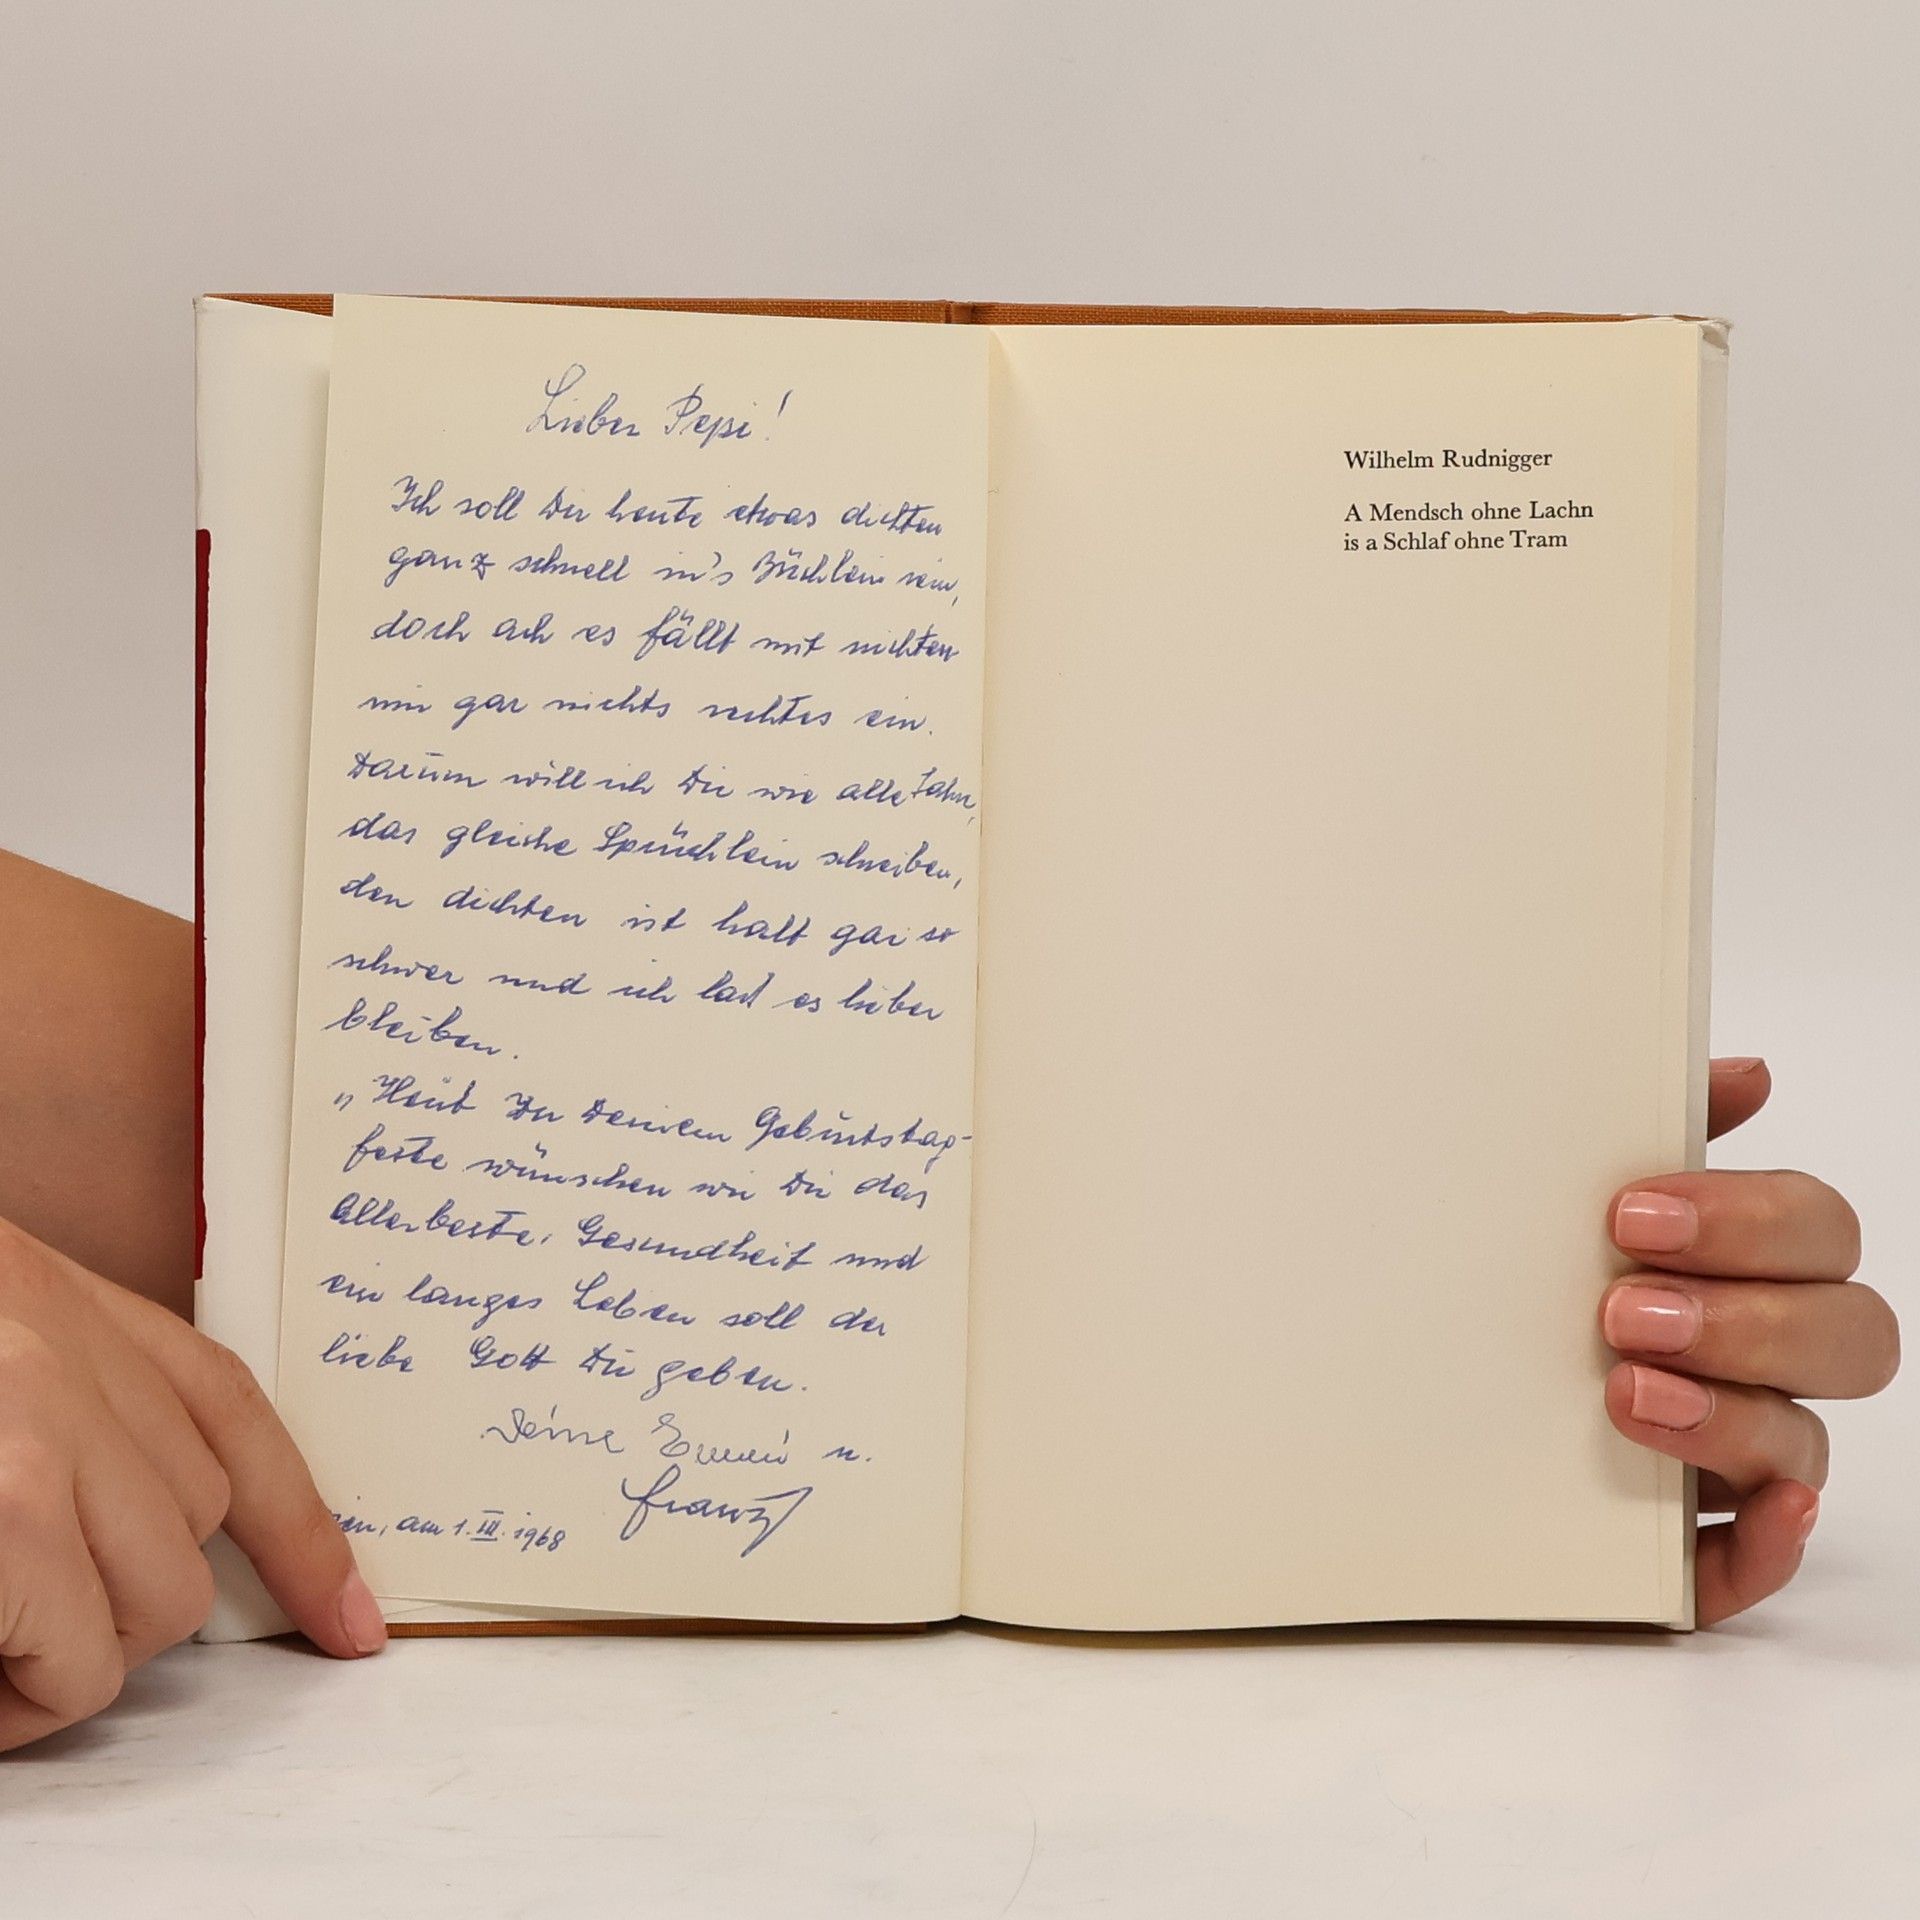 Lieber Pepi!
Ich soll Dir heute etwas dichten
ganz schnell in's Büchlein rein,
doch ach es fällt mit nichten
mir gar nichts rechtes ein.
Darum will ich Dir wie alle Jahr,
das gleiche Sprüchlein schreiben,
den dichten ist halt gar so
schwer und ich laß es lieber
bleiben.
„Heut zu Deinem Geburtstag-
feste wünschen wir Dir das
Allerbeste. Gesundheit und
ein langes Leben soll der
liebe Gott Dir geben.
Deine Emmi u.
Franz
am 1. III. 1968
Wilhelm Rudnigger
A Mendsch ohne Lachn
is a Schlaf ohne Tram